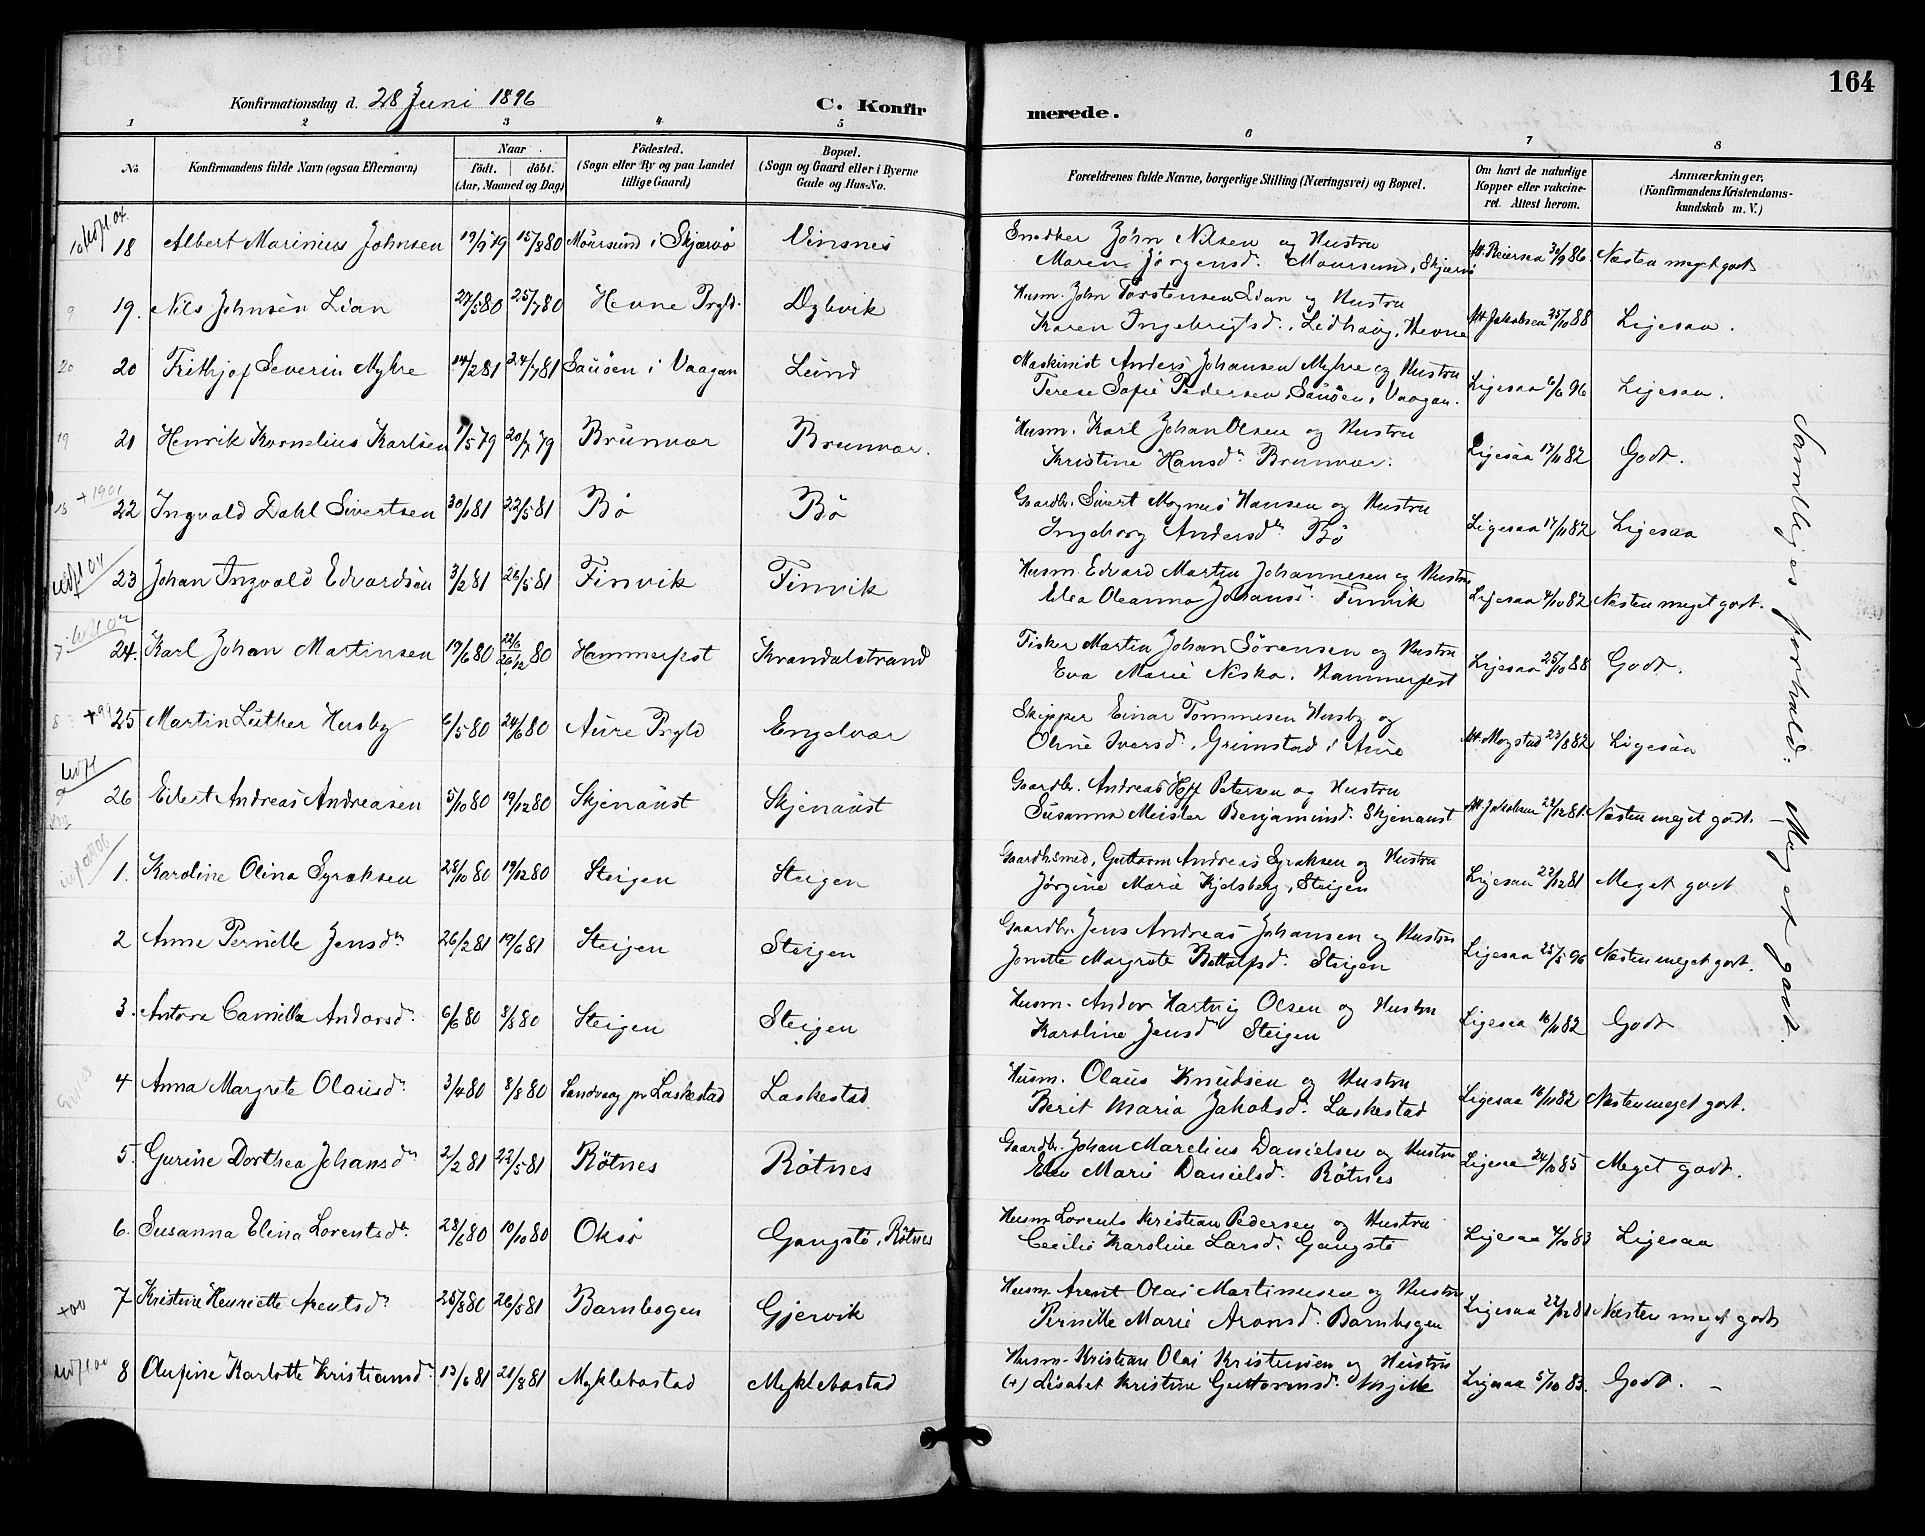 164
Konfirmationsdag d. 28 Juni 1896
C. Konfirmerede.
1 2 3 4 5 6 7 8
No
Konfirmandens fulde Navn (ogsaa Efternavn)
Naar
födt. döbt.
(Aar, Maaned og Dag)
Födested.
(Sogn eller By og paa Landet
tillige Gaard)
Bopæl.
(Sogn og Gaard eller i Byerne
Gade og Hus-No.
Forældrenes fulde Navne, borgerlige Stilling (Næringsvei) og Bopæl.
Om havt de naturlige
Kopper eller vakcine-
ret. Attest herom.
Anmærkninger.
(Konfirmandens Kristendoms-
kundskab m. V.)
18 Albert Marinius Johnsen 19/9 79 15/8 80 Maursund i Skjærvö Vinsnes
Snedker John Nilsen og Hustru
Maren Jörgensd. Maursund, Skjærvö
Att. Reiersen 30/9 86. Næsten meget godt
19. Nils Johnsen Lian 27/5 80 25/7 80 Hevne Prgld. Dybvik
Husm. John Torstensen Lian og Hustru
Karen Ingebrigtsd., Lidhaug, Hevne
Att. Jakobsen 25/10 88 Ligesaa.
20 Frithjof Severin Myhre 14/2 81 24/7 81 Sauöen i Vaagan Lund
Maskinist Anders Johansen Myhre og Hustru
Terese Sofie Pedersen, Sauöen, Vaagan.
Ligesaa 6/6 96 Ligesaa.
21 Henrik Kornelius Karlsen 1/5 79 20/7 79 Brunvær Brunvær.
Husm. Karl Johan Olsen og Hustru
Kristine Hansdr Brunvær.
Ligesaa 17/11 82 Godt.
+1901
22 Ingvald Dahl Sivertsen 30/1 81 22/5 81 Bö Bö
Gaardbr. Sivert Magnus Hansen og Hustru
Ingeborg Andersdr Bö
Ligesaa 17/11 82 Ligesaa
23 Johan Ingvald Edvardsen 3/2 81 26/5 81 Finvik Finvik
Husm. Edvard Martin Johannesen og Hustru
Elea Oleanna Johansd. Finvik
Ligesaa 4/10 82 Næsten meget godt.
24. Karl Johan Martinsen 17/6 80 22/6 26/12 80 Hammerfest Krandalstrand
Fisker Martin Johan Sörensen og Hustru
Eva Marie Niska. Hammerfest
Ligesaa 25/10 88 Godt.
25 Martin Luther Husby 6/5 80 24/6 80 Aure Prgld Engelvær
Skipper Einar Tommesen Husby og
Oline Iversd., Grimstad i Aure
Att. Mogstad 23/8 82 Ligesaa
26 Edert Andreas Andreasen 5/10 80 19/12 80 Skjenaust Skjenaust
Gaardbr. Andreas Hoff Petersen og Hustru
Susanna Meisler Benjaminsd. Skjenaust
Att. Jakobsen 22/12 81. Næsten meget godt.
1. Karoline Olina Syraksen 28/10 80 19/12 80 Steigen Steigen
Gaardbsmed. Guttorm Andreas Syraksen og Hustru
Jörgine Marie Kjelsberg, Steigen
Ligesaa 22/12 81 Meget godt
2 Anne Pernille Jensdr 26/2 81 19/6 81 Steigen Steigen
Gaardbr. Jens Andreas Johansen og Hustru
Jonette Margrete Bottolfsd. Steigen
Ligesaa 25/5 96 Næsten meget godt.
3. Antora Camilla Andorsd. 6/6 80 8/8 80 Steigen Steigen
Husm. Andor Hartvig Olsen og Hustru
Karoline Jensdr Steigen
Ligesaa 16/11 82 Godt
4 Anna Margrete Olausdr 3/4 80 8/8 80 Sandvaag pr Laskestad Laskestad
Husm. Olaus Knudsen og Hustru
Berit Maria Jakobsd. Laskestad
Ligesaa 16/11 82 Næsten meget godt.
5. Gurine Dorthea Johansdr 2/2 81 22/5 81 Rötnes Rötnes
Gaardbr. Johan Marelius Danielsen og Hustru
Elen Marie Danielsd. Rötnes
Ligesaa 24/10 85 Meget godt.
6. Susanna Elina Lorentsdr. 28/6 80 10/10 80 Oksö Gangstö, Rötnes
Husm Lorents Kristian Pedersen og Hustru
Cecilie Karoline Larsd. Gangstö
Ligesaa 4/10 83 Ligesaa
+00
7 Kristine Henriette Arentsdr 25/8 80 26/5 81 Barnbogen Gjervik
Husm. Arent Olai Martinusen og Hustru
Pernille Marie Aronsd. Barnbogen
Ligesaa 22/12 81 Næsten meget godt
8 Olufine Karlotte Kristiansdr 13/6 81 21/8 81 Myklebostad Myklebostad
Husm. Kristian Olai Kristensen og Hustru
(+) Lisabet Kristine Guttormsd.
Ligesaa 5/10 83. Godt. –
Samtliges forhold: Meget godt.